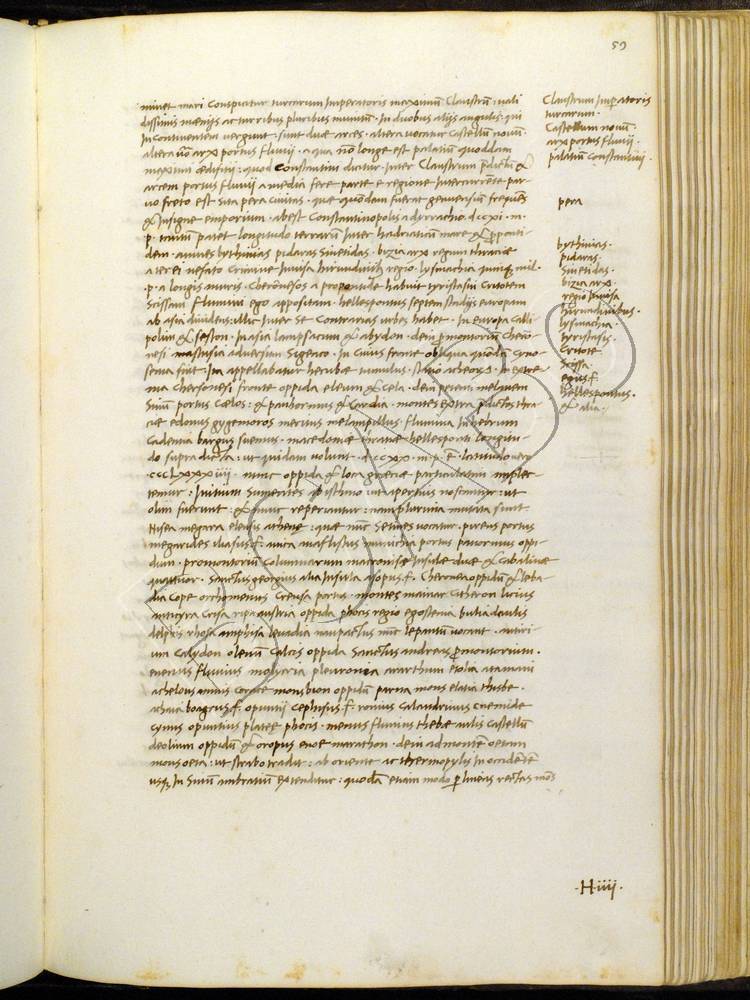 59
minet mari Conspicitur turcarum Imperatoris maximū Claustrū : uali
dissimis mœnijs ac turribus pluribus munitū · In duobus alijs angulis · qui
In continentem uergunt · sunt duæ arces · altera uocatur Castellū nouū ·
altera uō arx portus fluuij · a qua nō longe est palatiū quoddam
maximi ædifitij : quod Constantini dicitur · Inter Claustrum p̄dictū &
arcem portus fluuij a media fere parte e regione Intercurrēte par
uo freto est sita pera ciuitas · quæ quōdam fuerat genuensiū frequēs
& Insigne emporium · abest Constantinopolis a dyrrachio dccxi · m ·
p · tantū patet longitudo terrarū Inter hadriaticū mare & p̄ponti
dem · amnes bythinias pidaras sinetidas · bizia arx regum thraciæ
a terei nefato Crimine Inuisa hirundinib; regio · lysimachia
p · a longis muris · Cheronesos a propontide habuit tyristasin Critotem
Scissam fluminj ego appositam · hellespontus septem stadijs europam
ab asia diuidens : illic Inter se Contrarias urbes habet · In europa Calli
polim & seston · In asia lampsacum & abydon · dein p̄montoriū Chero
nesi · mastusia aduersum Sigæeo · In Cuius fronte obliqua quōdā cyno
sema sint · Ita appellabatur hecubæ tumulus · statio acheorū · In extre
ma Chersonesi fronte oppida eleum & cela · dein petenti melanem
Sinū portus Cælos : & panhormus & Cardia · montes extra p̄dictos thra
ciæ edonus gygemoros meritus melampillus · flumina In hebrum
Cadentia bargus suemus · macedoniæ thraciæ hellesponti longitu
do supra dicta : ut quidam uolunt · dccxx · m · p · ē · latitudo uero
ccclxxxiiij · nunc oppida & loca græciæ particulatim
temur : Initium Sumentes ab isthmo : uti apertius noscuntur : ut
olim fuerunt : & nunc reperiantur : nam plurima mutata sunt
Nisea megara eleusis athene · quæ nūc Setines uocatur · pireus portus
megarides ilissus f · munichia portus panormus oppi
dum · promontoriū Columnarum macronise Insulæ duæ & Cabalinæ
quattuor · Sanctus georgius alia Insula asopus f · Cheronea oppidū & leba
dia Cope orchomenus Creusa portus · montes mainar Citheron lirius
anticyra Crisa ripa austria oppida phocis regio egosteria bulia daulis
delphis rhosa amphisa leuadia naupactus nūc lepantū uocant · antiri
um Calydon olenū Calcis oppida Sanctus andreas p̄montorium ·
euenus fluuius molycria pleuronia ararthum etolia atamani
achelous amnis Corace monsbion oppidū parna mons elatia thisbe ·
achaia boagrius f · opuntij Cephisus f · ronius Calandrinus cnemide
Cymis opuntius plateæ phocis · menus fluuius thebæ aulis Castellū
deolium oppidū & oropus enoe marathon · dein ad montē oetam
mons oeta : ut strabo tradit : ab oriente ac thermopylis In occidētē
usq; In Sinū ambratiū extenditur : quodā etiam modo p lineas rectas mōs
Claustrum Impatoris
turcarum ·
Castellum nouū ·
arx portus fluuij ·
palatiū Constantinj ·
pera
bythinias ·
pidaras ·
Sinetidas ·
bizia arx ·
regio Inuisa
hirundinibus ·
lysimachia ·
tyristasis ·
Critote
Scissa
egus f ·
hellespontus ·
& alia ·
· H iiij ·